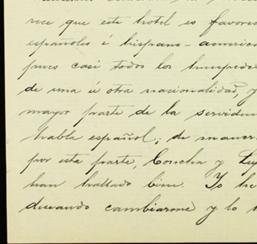 rece que este hotel es favorec
españoles é hispano-american
pues casi todos los huesped
de una u otra nacionalidad, y
mayor parte de la servidum
habla español; de maner
por esta parte, Concha y Luz
han hallado bien. Yo he
deseando cambiarme y lo